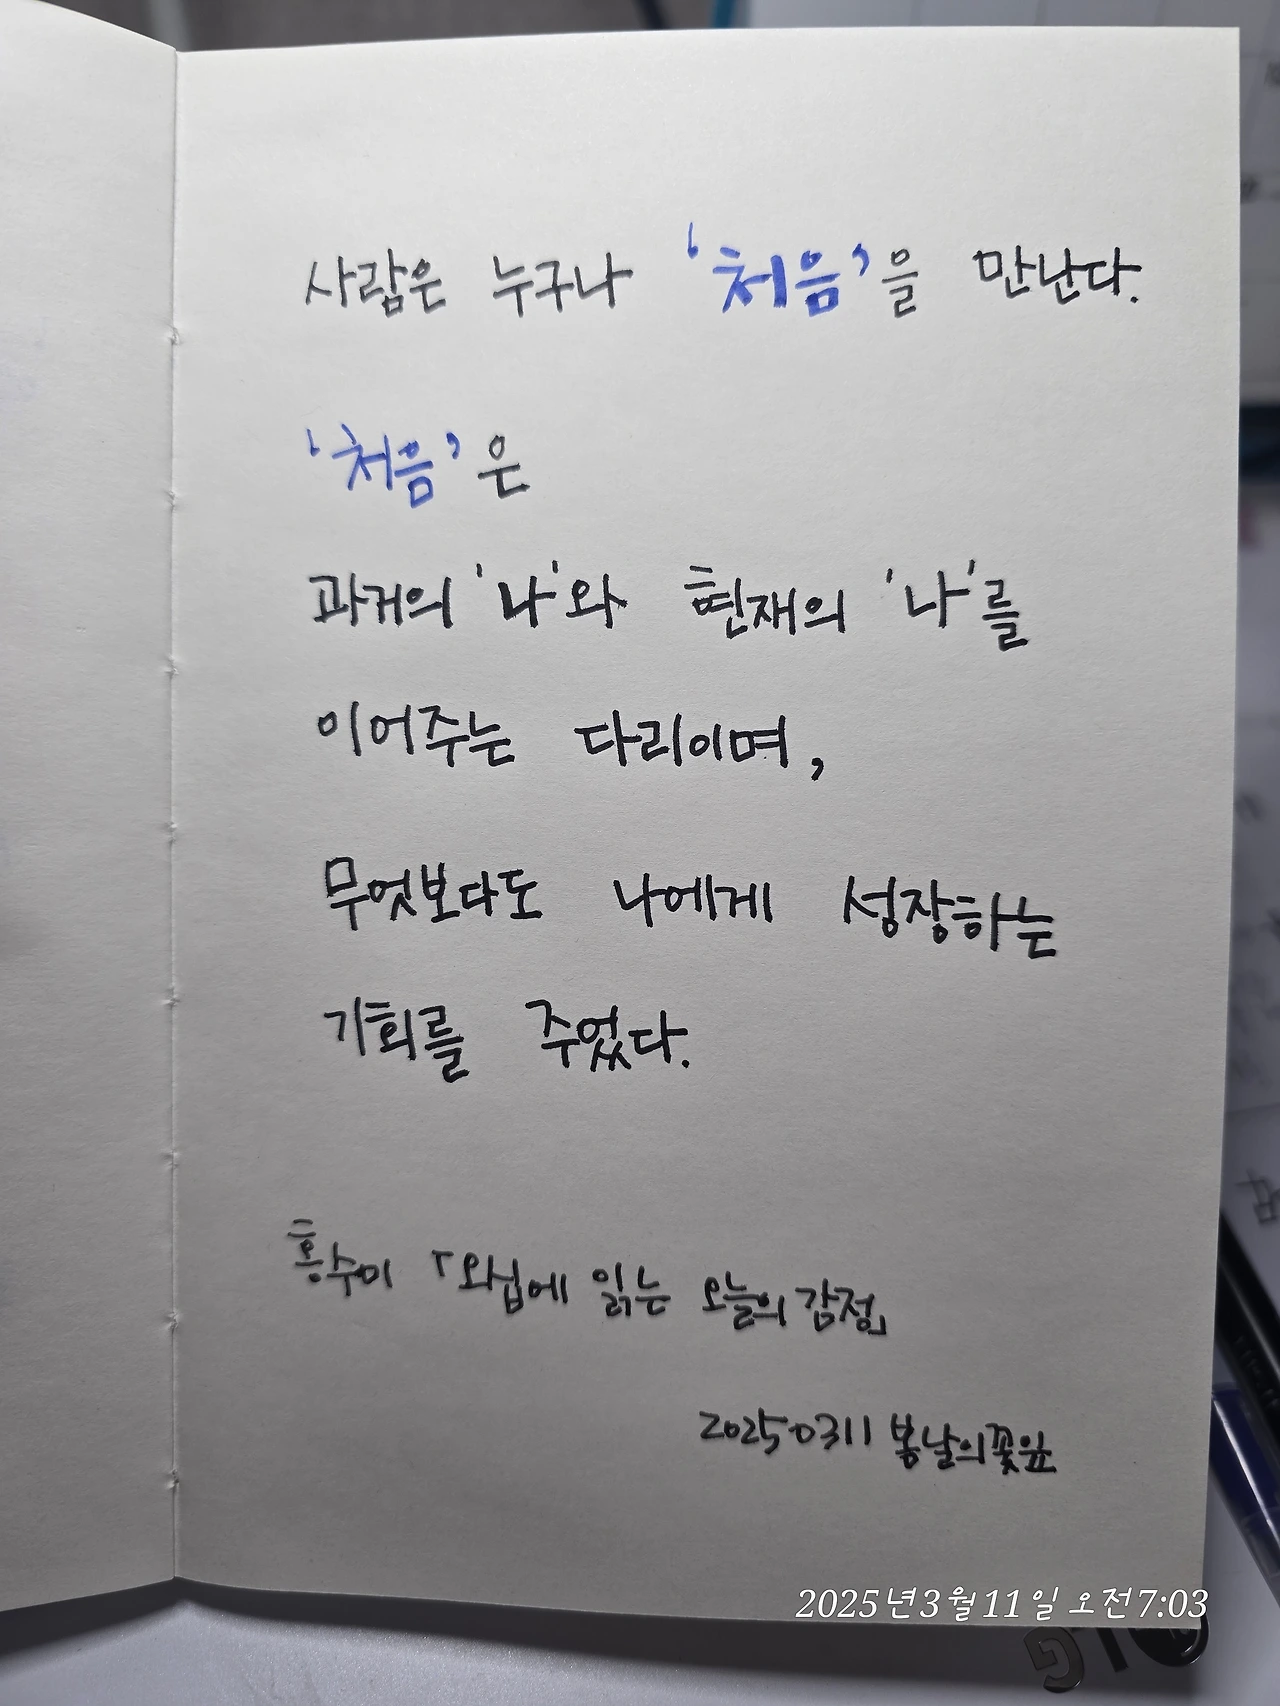 사람은 누구나 '처음'을 만난다.
'처음'은
과거의 '나'와 현재의 '나'를
이어주는 다리이며,
무엇보다도 나에게 성장하는
기회를 주었다.
홍수미 「와십에 읽는 오늘의 감정」
20250311 봄날의꽃잎
2025년3월11일 오전7:03